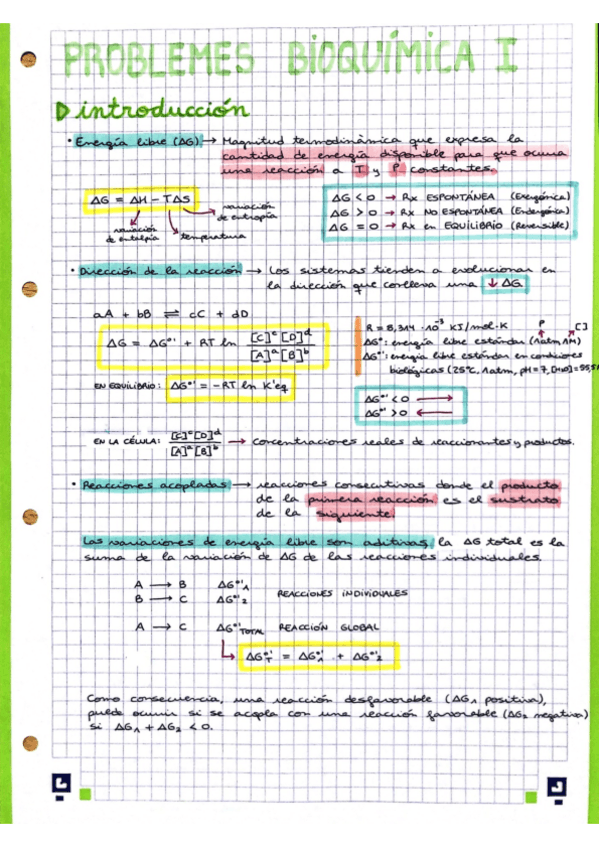 PROBLEMES BIOQUÍMICA I
introducción
• Energía libre (ΔG) → Magnitud termodinàmica que expresa la
cantidad de energía disponible para que ocurra
una reacción a T y P constantes.
ΔG = ΔH - TΔS
variación de entalpía
temperatura
variación de entropía
ΔG < 0 → Rx ESPONTÁNEA (Exergónica)
ΔG > 0 → Rx NO ESPONTÁNEA (Endergónica)
ΔG = 0 → Rx en EQUILIBRIO (Reversible)
• Dirección de la reacción → Los sistemas tienden a evolucionar en
la dirección que conlleva una ↓ ΔG.
aA + bB ⇌ cC + dD
ΔG = ΔG°' + RT ln [C]^c [D]^d / [A]^a [B]^b
R = 8,314 · 10⁻³ KJ/mol·K P [ ]
ΔG°: energía libre estándar (1atm, 1M)
ΔG°': energía libre estándar en condiciones
biológicas (25°C, 1atm, pH = 7, [H2O] = 55,5
EN EQUILIBRIO: ΔG°' = -RT ln K'eq
ΔG°' < 0 →
ΔG°' > 0 ←
EN LA CÉLULA: [C]^c [D]^d / [A]^a [B]^b → Concentraciones reales de reaccionantes y productos.
• Reacciones acopladas → reacciones consecutivas donde el producto
de la primera reacción es el sustrato
de la siguiente.
Las variaciones de energía libre son aditivas, la ΔG total es la
suma de la variación de ΔG de las reacciones individuales.
A → B ΔG°'1
B → C ΔG°'2
REACCIONES INDIVIDUALES
A → C ΔG°'TOTAL REACCIÓN GLOBAL
ΔG°'T = ΔG°'1 + ΔG°'2
Como consecuencia, una reacción desfavorable (ΔG1 positiva),
puede ocurrir si se acopla con una reacción favorable (ΔG2 negativa)
si ΔG1 + ΔG2 < 0.